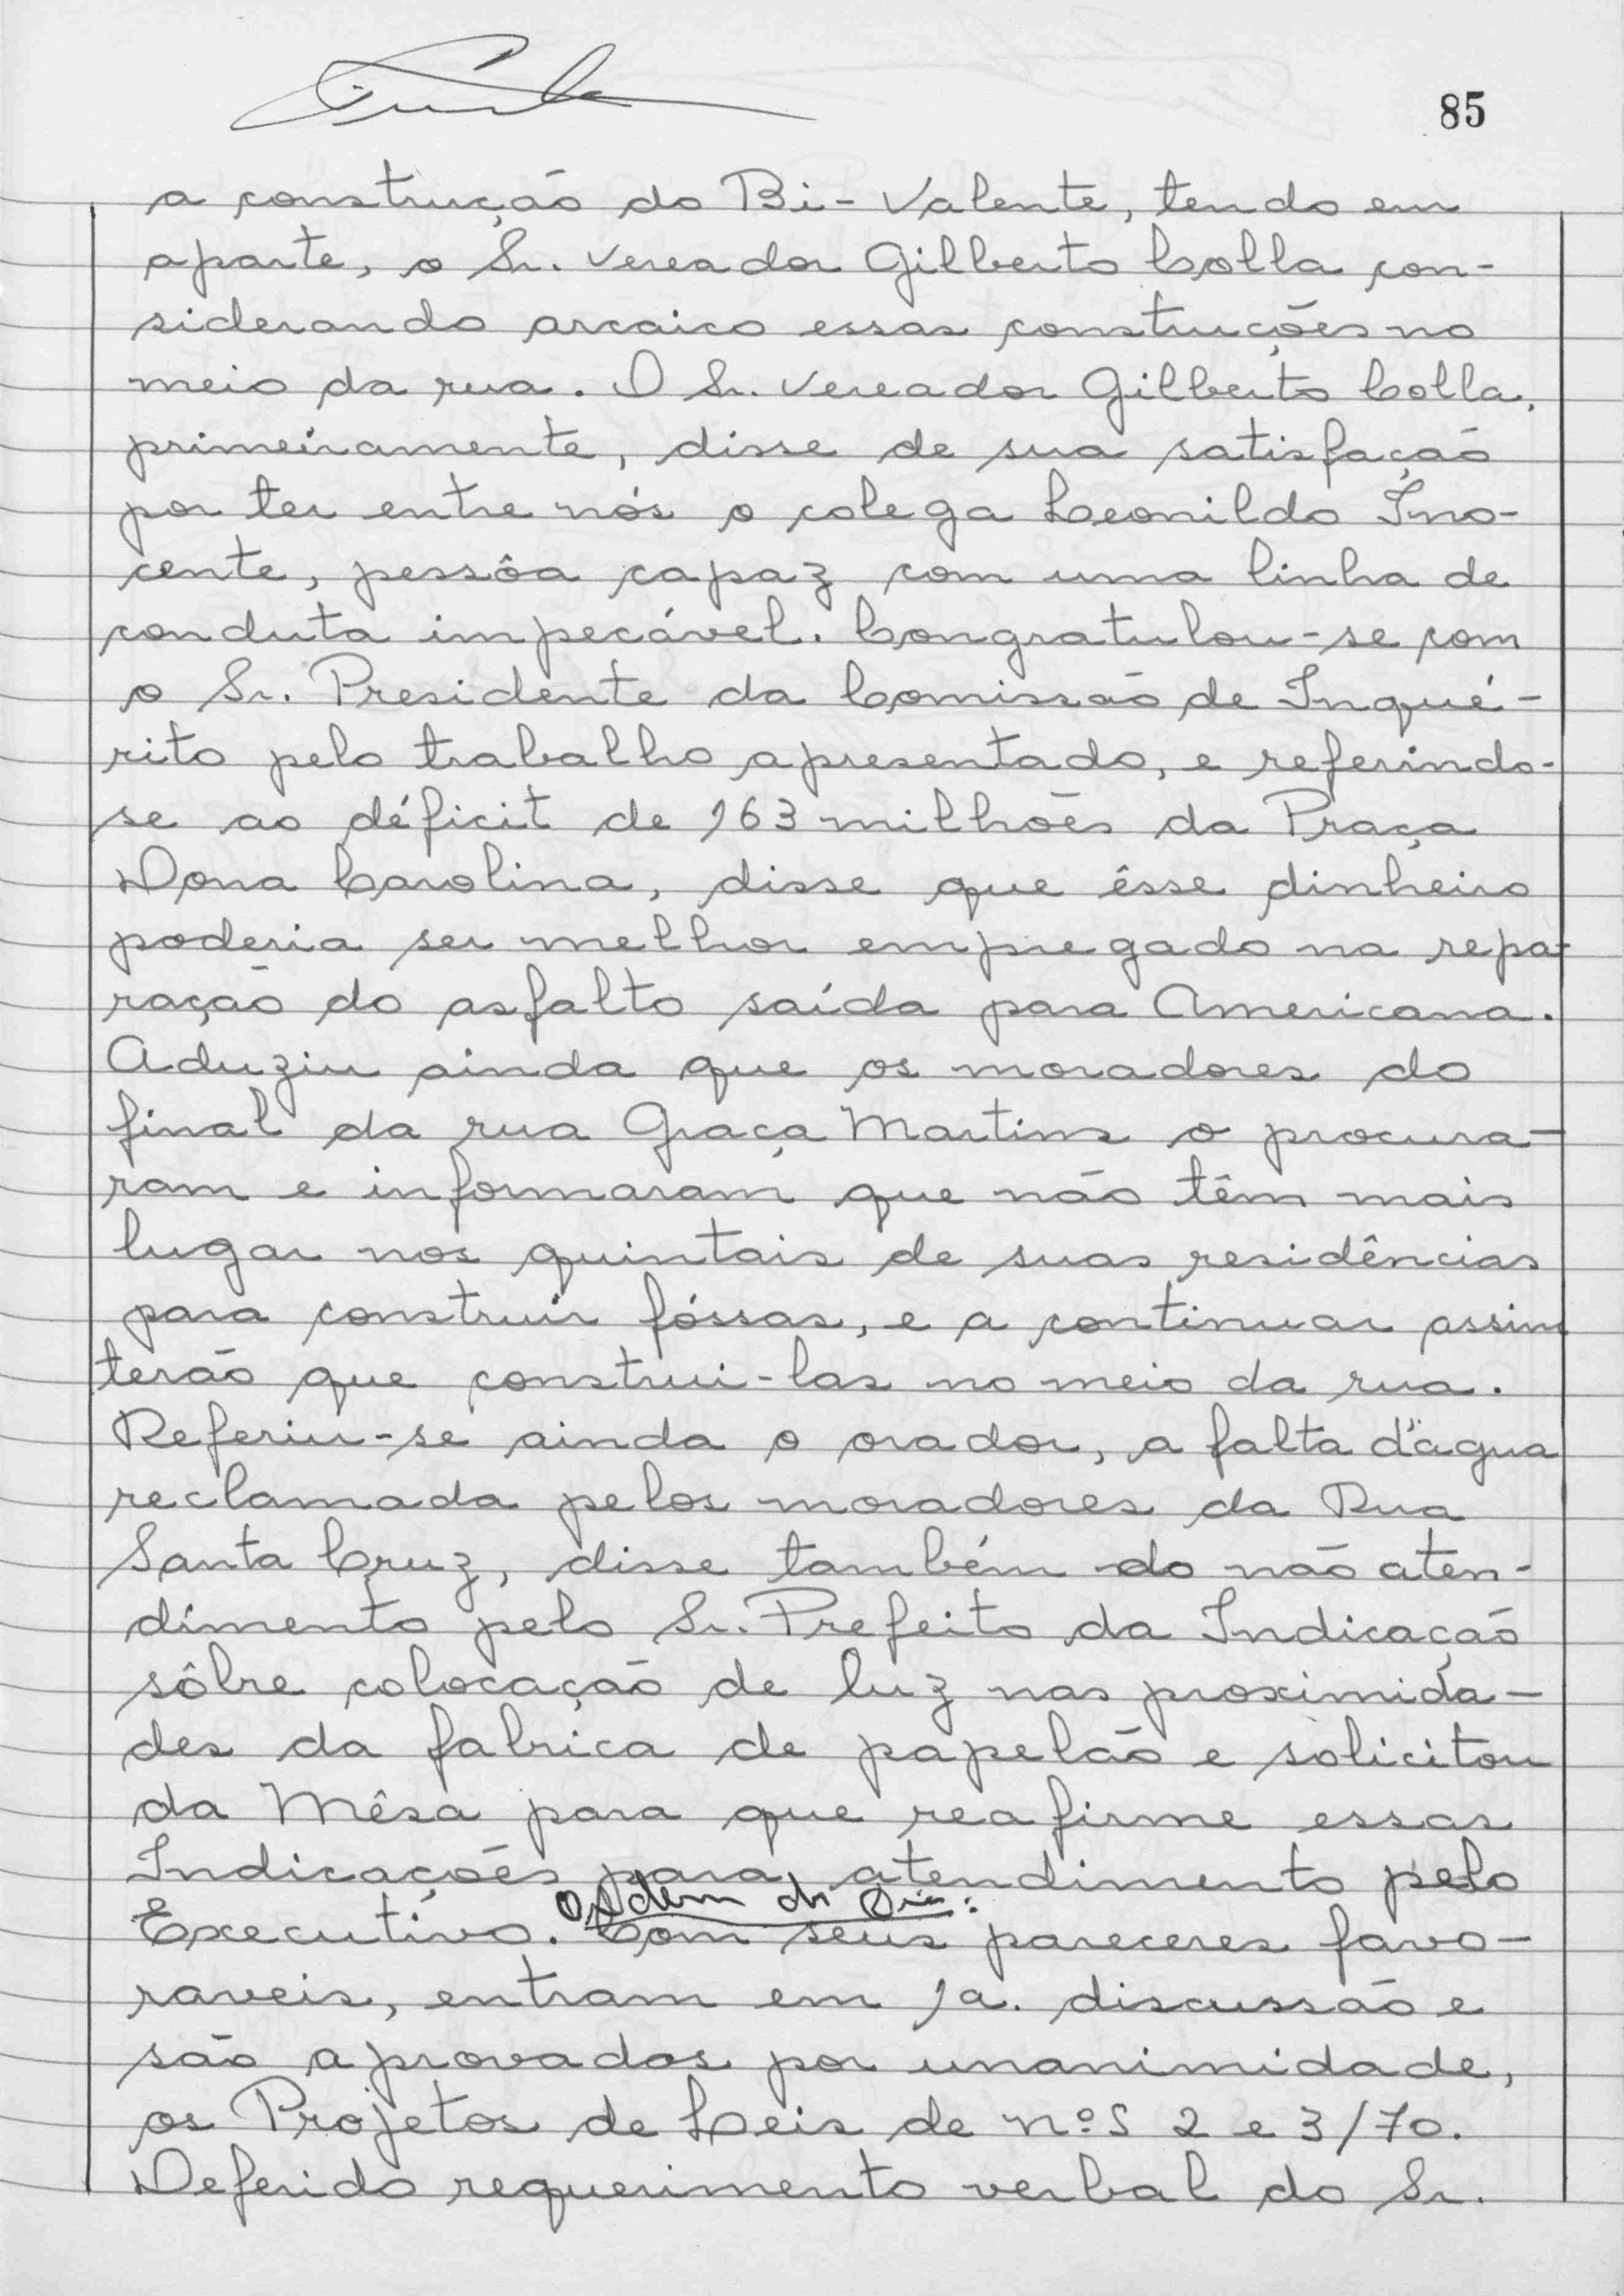 85
a construção do Bi-Valente, tendo em
aparte, o Sr. Vereador Gilberto Colla con-
siderando arcaico essas construções no
meio da rua. O Sr. Vereador Gilberto Colla,
primeiramente, disse de sua satisfação
por ter entre nós o colega Leonildo Ino-
cente, pessôa capaz com uma linha de
conduta impecável. Congratulou-se com
o Sr. Presidente da Comissão de Inqué-
rito pelo trabalho apresentado, e referindo-
se ao déficit de 163 milhões da Praça
Dona Carolina, disse que êsse dinheiro
poderia ser melhor empregado na repa-
ração do asfalto saída para Americana.
Aduziu ainda que os moradores do
final da rua Graça Martins o procura-
ram e informaram que não têm mais
lugar nos quintais de suas residências
para construir fóssas, e a continuar assim
terão que construi-las no meio da rua.
Referiu-se ainda o orador, a falta d'água
reclamada pelos moradores da Rua
Santa Cruz, disse também do não aten-
dimento pelo Sr. Prefeito da Indicação
sôbre colocação de luz nas proximida-
des da fabrica de papelão e solicitou
da Mêsa para que reafirme essas
Indicações para atendimento pelo
Ordem do Dia:
Executivo. Com seus pareceres favo-
raveis, entram em 1a. discussão e
são aprovados por unanimidade,
os Projetos de Leis de nºs 2 e 3/70.
Deferido requerimento verbal do Sr.